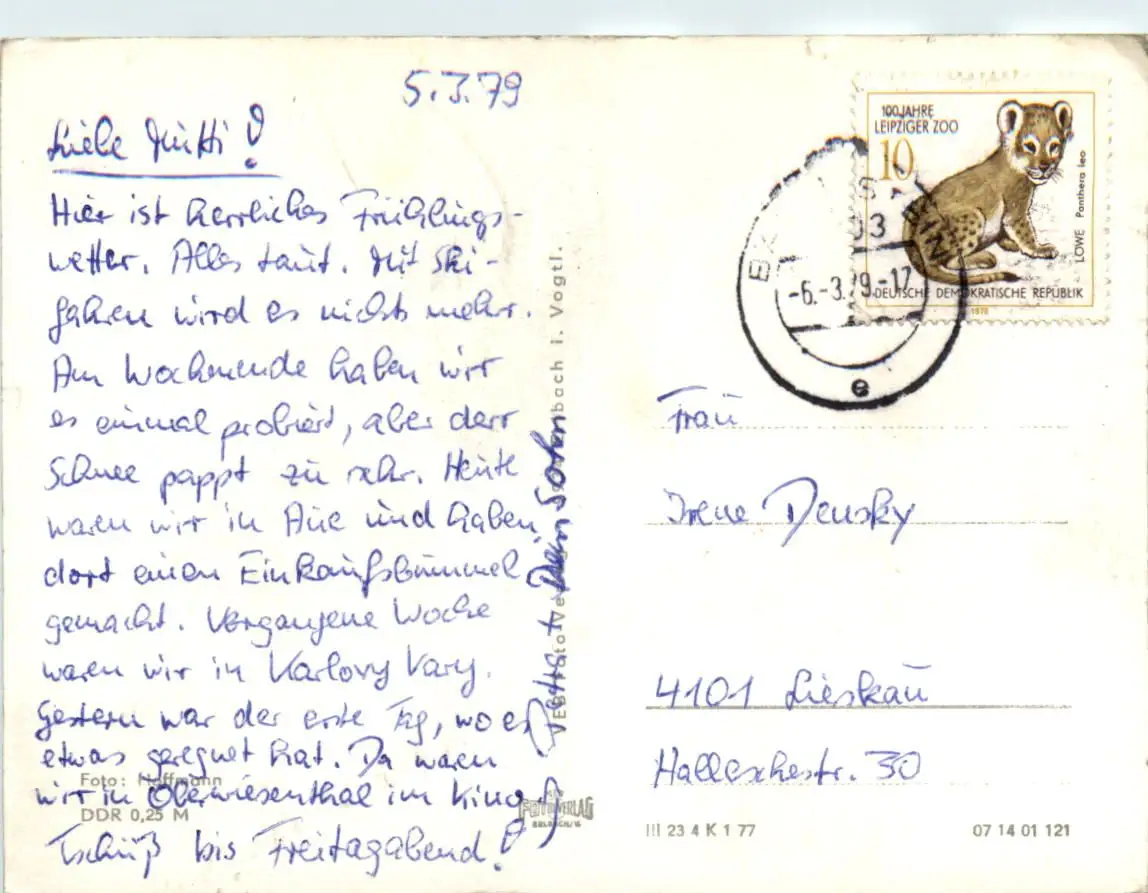 5.3.79
Liebe Mutti!
Hier ist herrliches Frühlings-
wetter. Alles taut. Mit Ski-
fahren wird es nichts mehr.
Am Wochenende haben wir
es einmal probiert, aber der
Schnee pappt zu sehr. Heute
waren wir in Aue und haben
dort einen Einkaufsbummel
gemacht. Vergangene Woche
waren wir in Karlovy Vary.
Gestern war der erste Tag, wo es
etwas geregnet hat. Da waren
wir in Oberwiesenthal im Kino.
Tschüß bis Freitagabend!
Dein Sohn
Foto: Hoffmann
DDR 0,25 M
bach i. Vogtl.
FOTO VERLAG
100 JAHRE
LEIPZIGER ZOO
10
LÖWE Panthera leo
DEUTSCHE DEMOKRATISCHE REPUBLIK
1978
-6.-3.79-17
e
Frau
Irene Densky
4101 Lieskau
Halleschestr. 30
III 23 4 K 1 77
07 14 01 121